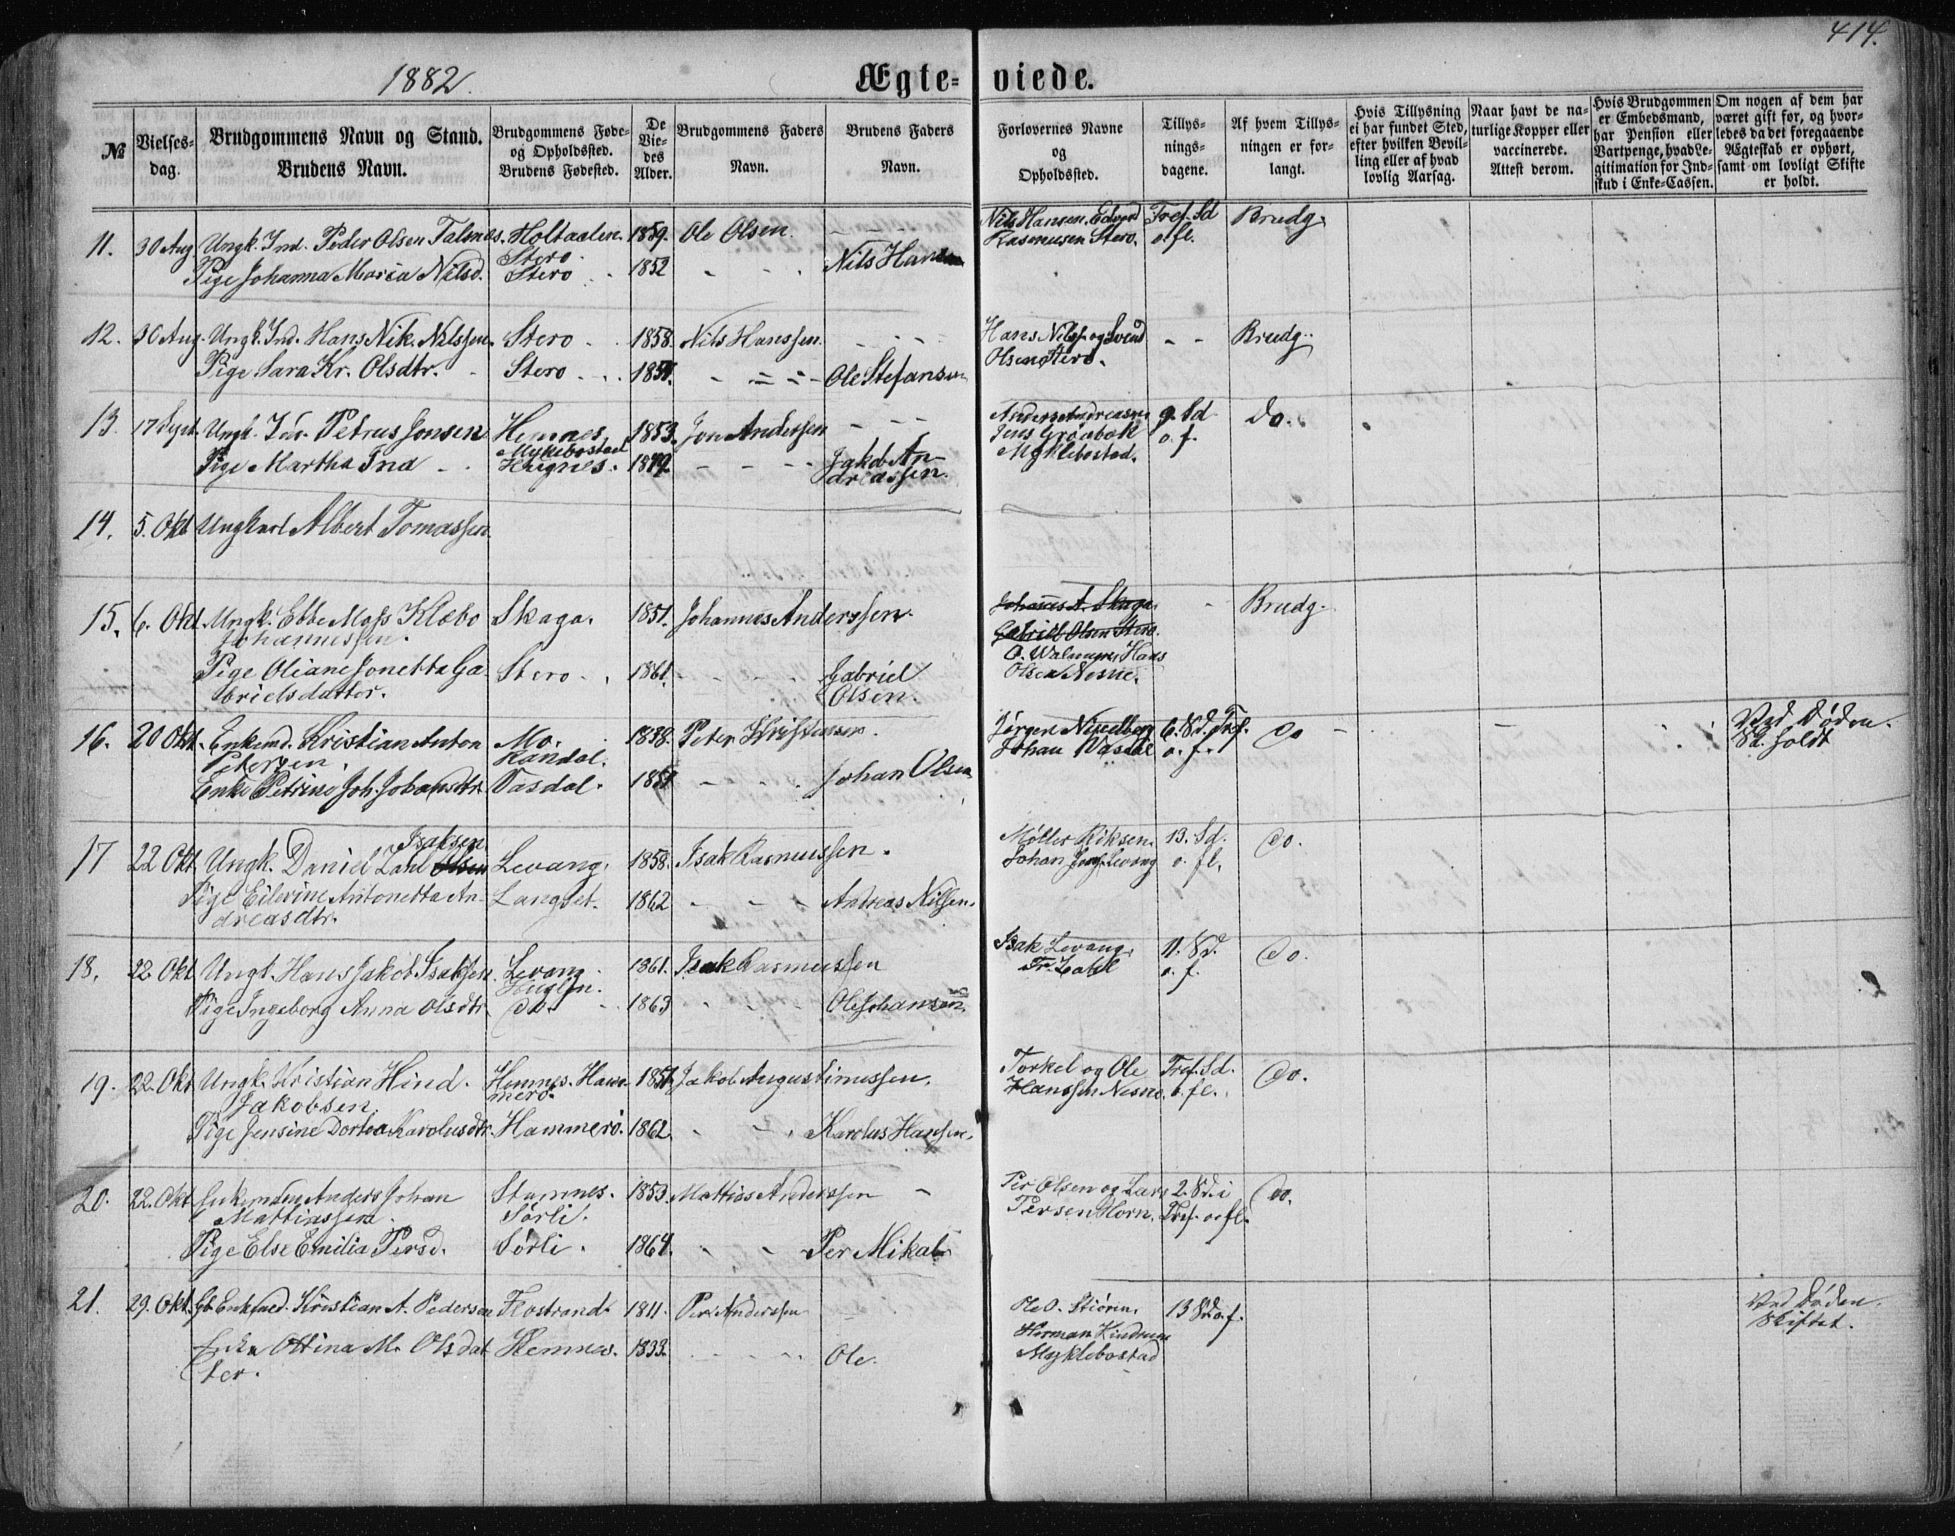 414.
1882.
Ægte- viede.
№
Vielses-
dag.
Brudgommens Navn og Stand.
Brudens Navn.
Brudgommens Føde-
og Opholdssted.
Brudens Fødested.
De
Vie-
des
Alder.
Brudgommens Faders
Navn.
Brudens Faders
Navn.
Forlovernes Navne
og
Opholdssted.
Tillys-
nings-
dagene.
Af hvem Tillys-
ningen er for-
langt.
Hvis Tillysning
ei har fundet Sted,
efter hvilken Bevil-
ling eller af hvad
lovlig Aarsag.
Naar havt de na-
turlige Kopper eller
vaccinerede.
Attest derom.
Hvis Brudgommen
er Embedsmand,
har Pension eller
Vartpenge, hvad Le-
gitimation for Ind-
skud i Enke-Cassen.
Om nogen af dem har
været gift før, og hvor-
ledes da det foregaaende
Ægteskab er ophørt,
samt om lovligt Skifte
er holdt.
11. 30 Aug Ungk. Ind. Peder Olsen Talsnes. Holtaalen. 1859. Ole Olsen. Nils Hansen. Edvard Tref. Sd Brudg.
Stero. Rasmusen Stero. o. fl.
Pige Johanna Maria Nilsd. Stero 1852 Nils Hansen
12. 30 Aug. Ungk. Ind. Hans Nik. Nilssen. Stero 1858. Nils Hanssen. Hans Nilss. og Svend Brudg.
Olsen Stero.
Pige Sara Kr. Olsdtr. Stero Ole Stefansen
13. 17 Sept. Ungk. Ind. Petrus Jonsen Hemnes 1853. Jon Anderssen Anders Andreasen 9. Sd Do.
Myklebostad Jens Grønbæk o. f.
Pige Martha Ind Hugnes. 1849. Jakob An- Myklebostad.
dreassen.
14. 5. Okt Ungkarl Albert Tomassen
15. 6. Okt. Ungk. Ebbe Moss Klæbo Skaga. 1851. Johannes Anderssen. Johannes A. Skaga. Brudg.
Johannessen. Gabriel Olsen Stero.
Hans
Pige Oliane Jonetta Ga- Stero 1861. Gabriel Olsen Nesne.
brielsdatter. Olsen.
16. 20 Okt. Enkemd. Kristian Anton Mo. 1838. Peter Kristensen. Jørgen 6. Sd. Tref. Do Ved Døden.
Petersen. Kandal. Johan Vasdal o. f. Sk. holdt
Enke Petrine Joh. Johansdtr. Vasdal. Johan Olsen
17 22 Okt Ungk. Daniel Zahl Olsen Isaksen Levang. 1858. Isak Rasmussen. Møller Riksen. 13. Sd. Do.
Johan Levang o. fl.
Pige Eilerine Antonetta An- Langset. 1862 Andreas Nilssen.
dreasdtr.
18. 22 Okt Ungk. Hans Jakob Isaksen. Levang 1861. Isak Rasmussen Isak Levang. 11. Sd. Do.
Huglen. Fr. Zahl o. f.
Pige Ingeborg Anna Olsdtr. Do. 1863 Ole Johansen.
19. 22. Okt Ungk. Kristian Hind. Hemnes. Ham- Jakob Augustinussen. Torkel og Ole Tref. Sd. Do.
Jakobsen. merø. Hanssen Nesne. o. fl.
Pige Jensine Dortea Karolusdtr. Hammerø. 1862. Karolus Hansen.
20. 22. Okt Enkemden Anders Johan Stamnes. 1853. Mattias Anderssen Per Olsen og Lars 2. Sd. i Do.
Mattiassen. Sørli. Persen Horn. Tref. o. fl.
Pige Else Emilia Persd. Sørli. 1864. Per Mikal
21. 29. Okt. Gb. Enkmd. Kristian A. Pedersen Flostrand. 1811. Per Anderssen Ole O. 13 Sd. o. f. Ved Døden.
Herman Skiftet.
Enke Ottina M. Olsdat Hemnes. 1833. Ole. Myklebostad
ter.